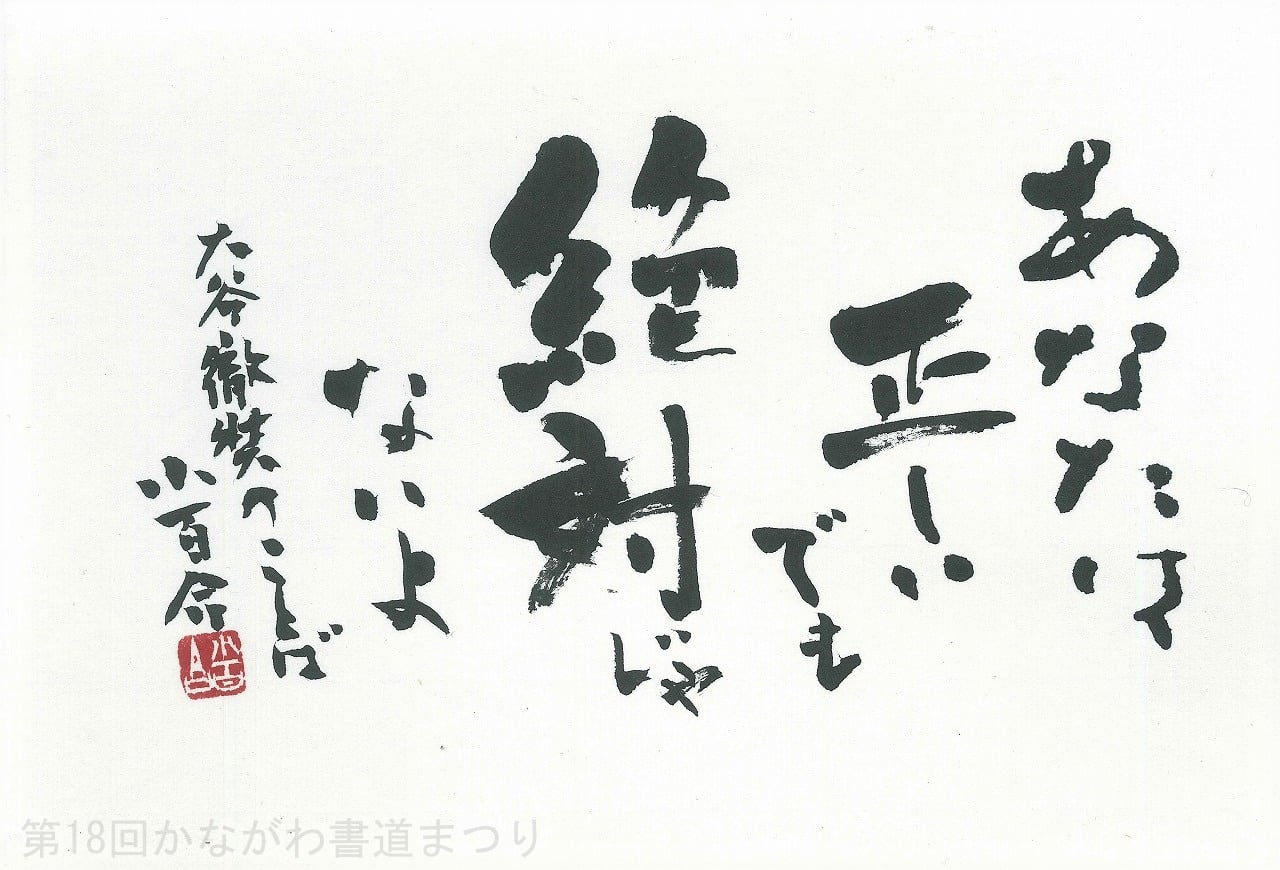 あなたは
正しい
でも
絶対じゃ
ないよ
大谷徹奘のことば
小百合
第18回かながわ書道まつり